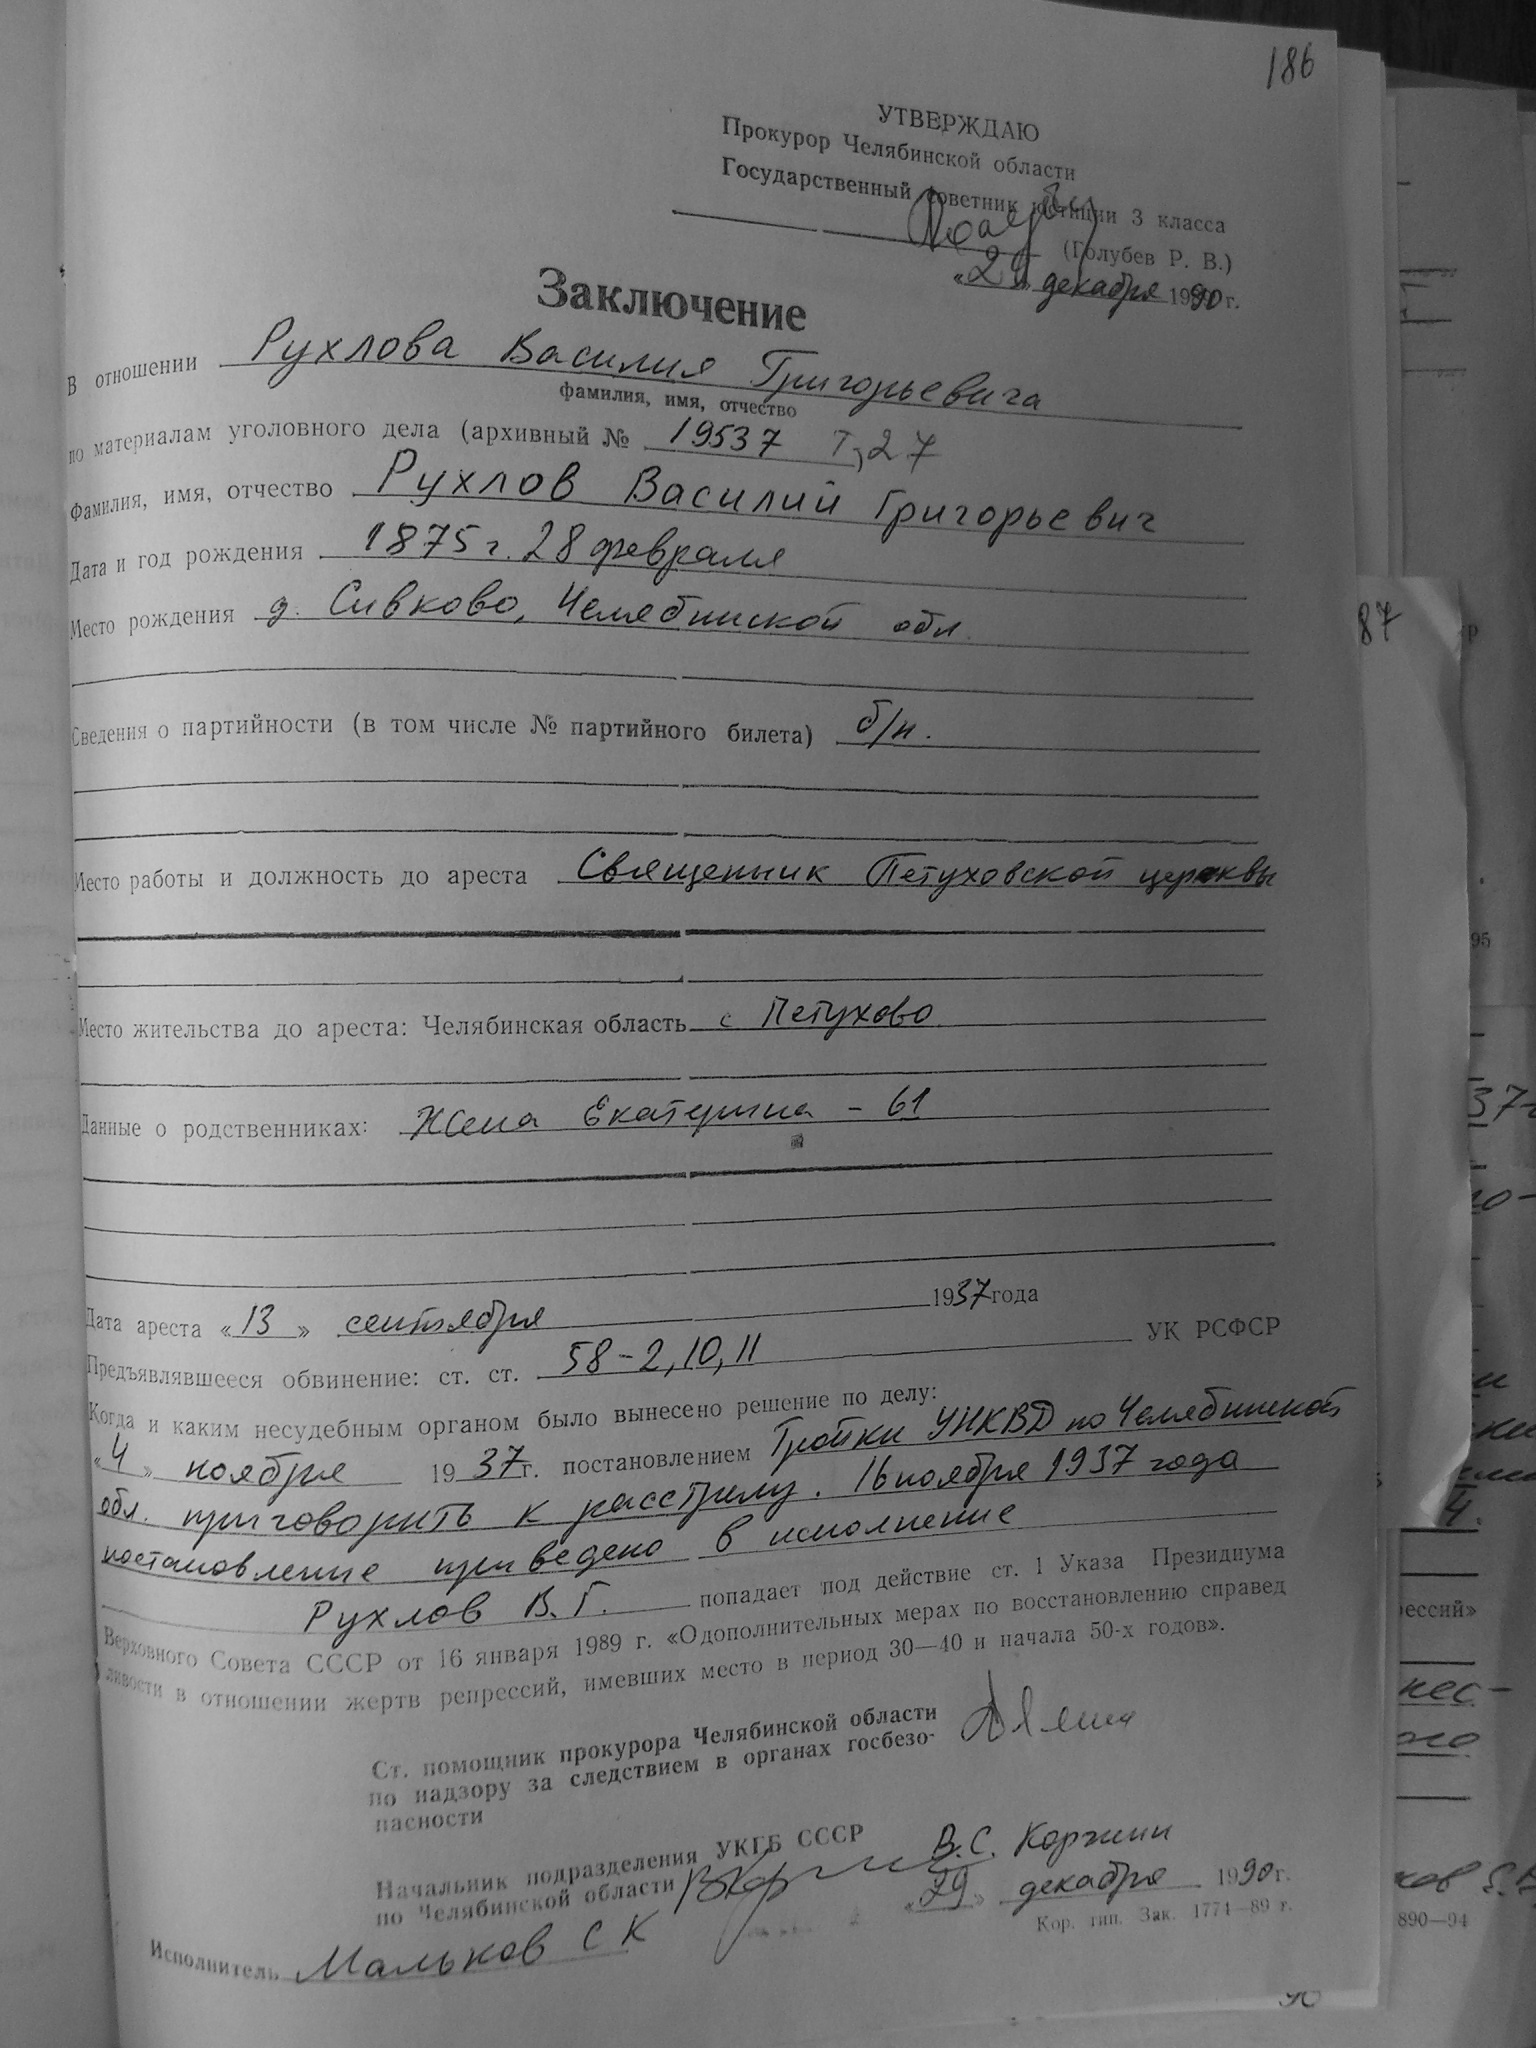 186
УТВЕРЖДАЮ
Прокурор Челябинской области
Государственный советник юстиции 3 класса
(Голубев Р. В.)
«29» декабря 1990 г.
Заключение
В отношении Рухлова Василия Григорьевича
фамилия, имя, отчество
по материалам уголовного дела (архивный № 19537 Т,27
Фамилия, имя, отчество Рухлов Василий Григорьевич
Дата и год рождения 1875 г. 28 февраля
Место рождения д. Сивково, Челябинской обл.
Сведения о партийности (в том числе № партийного билета) б/п.
Место работы и должность до ареста Священник Петуховской церквы
Место жительства до ареста: Челябинская область с Петухово
Данные о родственниках: Жена Екатерина - 61
Дата ареста «13» сентября 1937 года
Предъявлявшееся обвинение: ст. ст. 58-2,10,11 УК РСФСР
Когда и каким несудебным органом было вынесено решение по делу:
«4» ноября 1937 г. постановлением Тройки УНКВД по Челябинской
обл. приговорить к расстрелу. 16 ноября 1937 года
постановление приведено в исполнение
Рухлов В.Г. попадает под действие ст. 1 Указа Президиума
Верховного Совета СССР от 16 января 1989 г. «О дополнительных мерах по восстановлению справед
ливости в отношении жертв репрессий, имевших место в период 30—40 и начала 50-х годов».
Ст. помощник прокурора Челябинской области
по надзору за следствием в органах госбезо-
пасности
Начальник подразделения УКГБ СССР
по Челябинской области В.С. Коржин
«29» декабря 1990 г.
Кор. тип. Зак. 1774—89 г.
Исполнитель Мальков С К
87
95
37
890—94